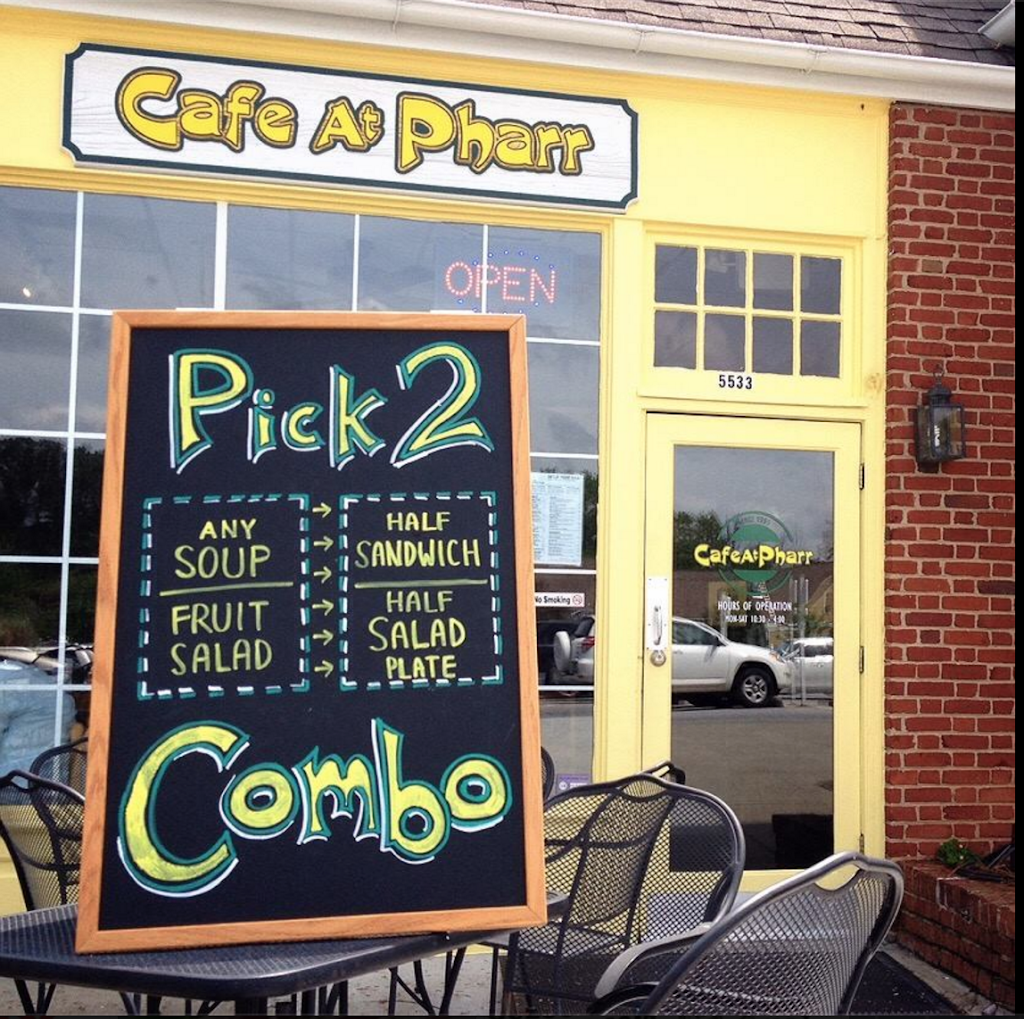 Cafe At Pharr
OPEN
5533
Pick 2
ANY
SOUP
FRUIT
SALAD
HALF
SANDWICH
HALF
SALAD
PLATE
Combo
No Smoking
SINCE 1991
Cafe At Pharr
HOURS OF OPERATION
MON-SAT 10:30 - 4:00